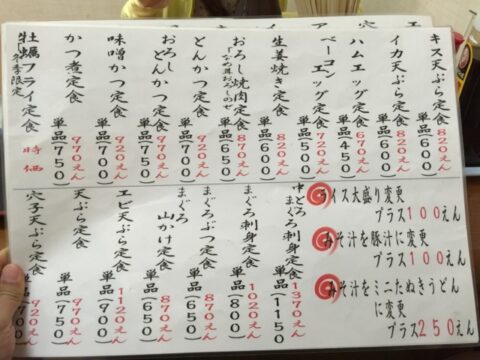 キス天ぷら定食 820えん
単品(600)
イカ天ぷら定食 820えん
単品(600)
ハムエッグ定食 670えん
単品(450)
ベーコンエッグ定食 720えん
単品(500)
生姜焼き定食 820えん
単品(600)
おろし焼肉定食 870えん
「なめ茸おろしのせ」
単品(650)
とんかつ定食 920えん
単品(700)
おろしどんかつ定食 970えん
単品(750)
味噌かつ定食 920えん
単品(700)
かつ煮定食 970えん
単品(750)
牡蠣フライ定食 時価
冬季限定
ライス大盛り変更
プラス100えん
みそ汁を豚汁に変更
プラス100えん
みそ汁をミニたぬきうどん
に変更
プラス250えん
中とろまぐろ刺身定食 1370えん
単品(1150)
まぐろ刺身定食 1020えん
単品(800)
まぐろぶつ定食 870えん
単品(650)
まぐろ山かけ定食 870えん
単品(650)
エビ天ぷら定食 1120えん
単品(900)
天ぷら定食 970えん
単品(750)
穴子天ぷら定食 920えん
単品(700)